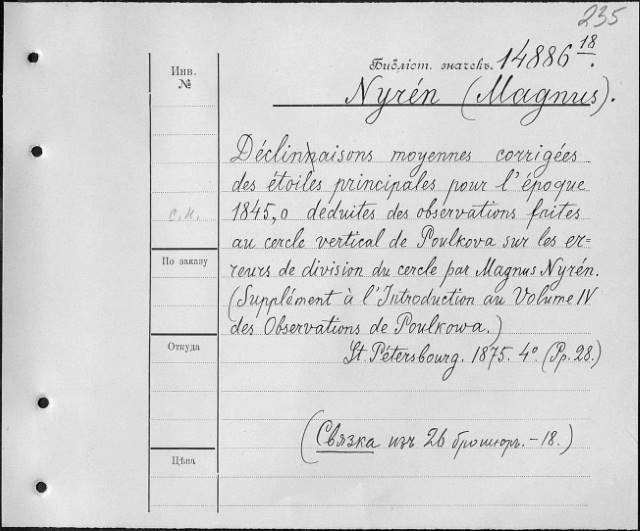 235
Инв.
№
Библіот. значекъ. 14886 18.
Nyrén (Magnus).
Déclinnaisons moyennes corrigées
des étoiles principales pour l'époque
с.и. 1845,0 déduites des observations faites
au cercle vertical de Poulkova sur les er=
По заказу reurs de division du cercle par Magnus Nyrén.
(Supplément à l'Introduction au Volume IV
des Observations de Poulkowa.)
Откуда St. Pétersbourg. 1875. 4° (Pp. 28.)
(Связка изъ 26 брошюръ. - 18.)
Цѣна